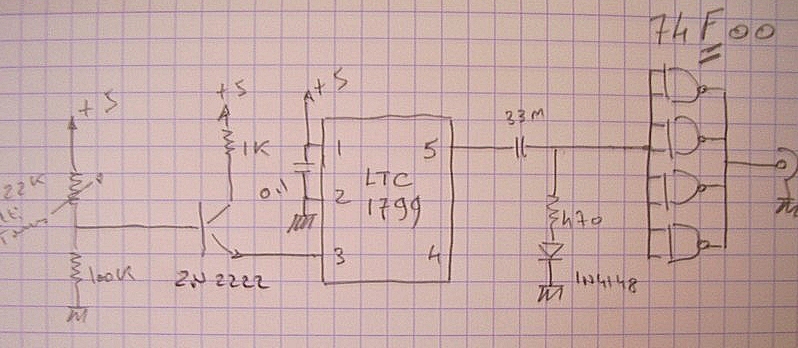 74F00
+5
+5
+5
22K
1K
0.1
1
2
3
4
5
LTC
1799
33M
470
1N4148
100K
2N2222